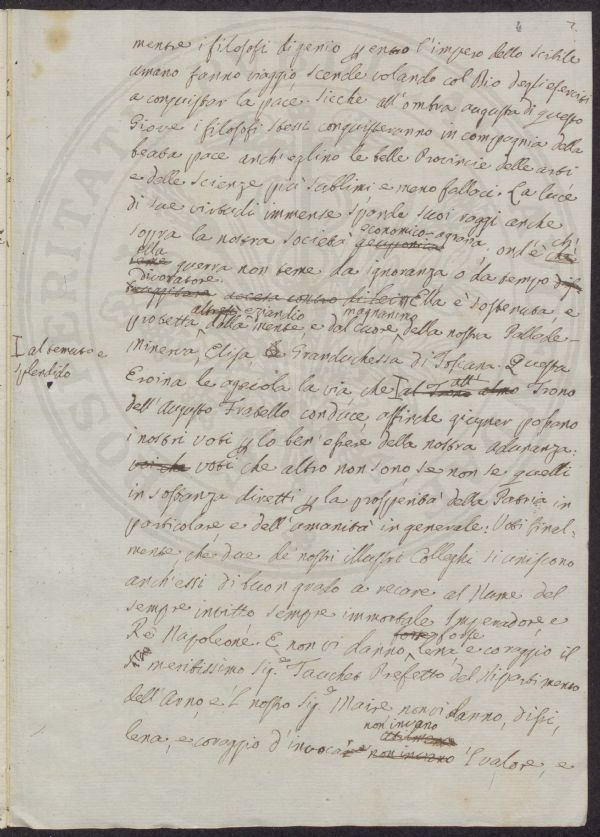 7
mentre i filosofi di genio p entro l'impero dello scibile
umano fanno viaggio scende volando col Dio degli eserciti
a conquistar la pace. Sicchè all'ombra augusta di questo
Giove i filosofi stessi conquisteranno in compagnia della
beata pace anch'eglino le belle Provincie delle arti
e delle scienze più sublimi e meno fallaci. La luce
di sue virtudi immense spande suoi raggi anche
economico-agraria ch'
sopra la nostra società geoponica, ond'è che
ella
teme guerra non teme da ignoranza o da tempo
divoratore
accesa contro di lei. Ella è sostenuta, e
altresì eziandio magnanimo
protetta dalla mente, e dal cuore della nostra Pallade-
Minerva, Elisa Granduchessa di Toscana. Questa
al temuto e
splendido
Eroina le agevola la via che al Trono almo all' Trono
dell'Augusto Fratello conduce affinchè giugner possano
i nostri voti p lo ben'essere della nostra adunanza:
voti che voti che altro non sono se non se quelli
in sostanza diretti p la prosperità della Patria in
particolare e dell'umanità in generale: Voti final-
mente che due de' nostri illustri Colleghi si uniscono
anch'essi di buon grado a recare al Nume del
sempre invitto sempre immortale Imperadore e
forse forse
Rè Napoleone. E non vi danno lena e coraggio il
meritissimo Sig.r Fauchet Prefetto del Dipartimento
dell'Arno e 'l nostro Sig.r Maire non vi danno, dissi,
non invano
lena, e coraggio d'invocare non invano 'l valore, e